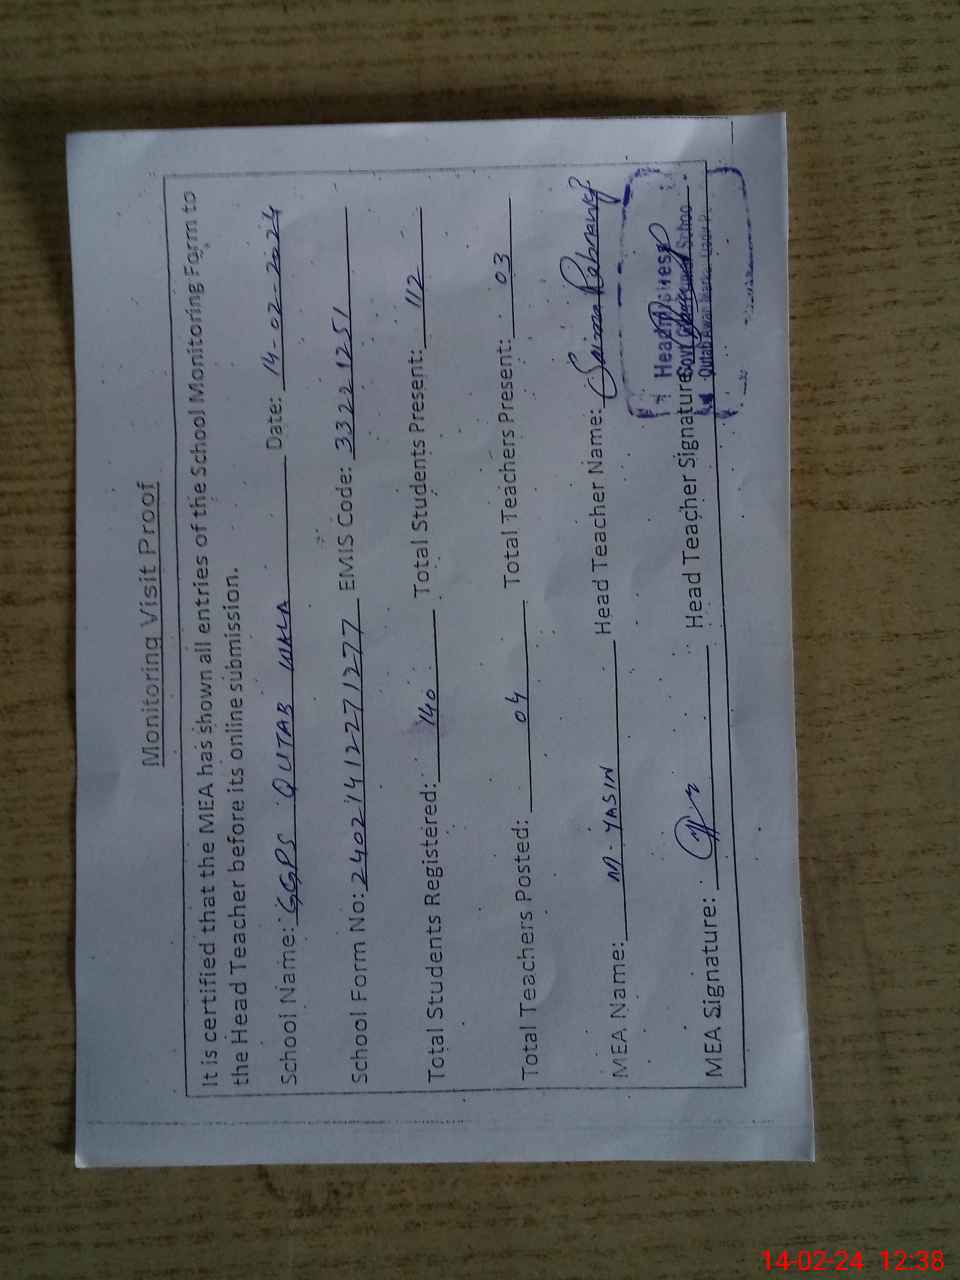 Monitoring Visit Proof
It is certified that the MEA has shown all entries of the School Monitoring Form to
the Head Teacher before its online submission.
School Name: GGPS QUTAB WALA Date: 14-02-2024
School Form No: 2402141227 1277 EMIS Code: 3322 1251
Total Students Registered: 140 Total Students Present: 112
Total Teachers Posted: 04 Total Teachers Present: 03
MEA Name: M. YASIN Head Teacher Name: Saima
MEA Signature: Head Teacher Signature:
Headmistress
Govt. Schoo
Qutab
14-02-24 12:38